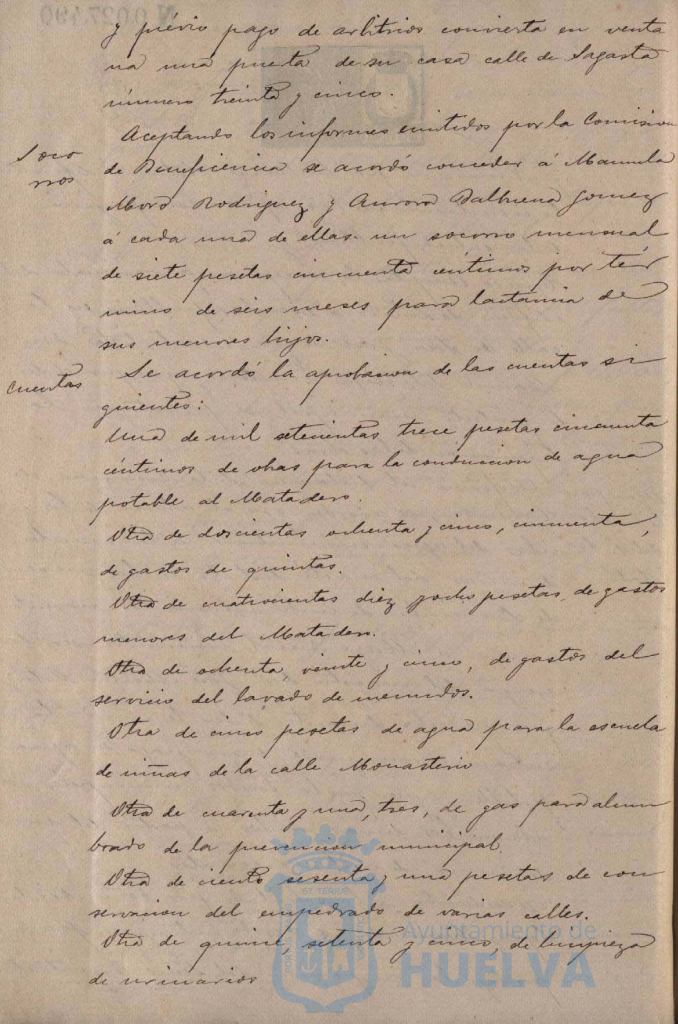 Nº 0.027.490
y prévio pago de arbitrios convierta en venta
na una puerta de su casa calle de Sagasta
número treinta y cinco.
Aceptando los informes emitidos por la Comision
Soco
rros
de Beneficencia se acordó conceder á Manuela
Moro Rodriguez y Aurora Balbuena Gomez
á cada una de ellas un socorro mensual
de siete pesetas cincuenta céntimos por tér
mino de seis meses para lactancia de
sus menores hijos.
Cuentas
Se acordó la aprobacion de las cuentas si
guientes:
Una de mil setecientas trece pesetas cincuenta
céntimos de obras para la conduccion de agua
potable al Matadero.
Otra de doscientas ochenta y cinco, cincuenta,
de gastos de quintas.
Otra de cuatrocientas diez y ocho pesetas de gastos
menores del Matadero.
Otra de ochenta, veinte y cinco, de gastos del
servicio del lavado de menudos.
Otra de cinco pesetas de agua para la escuela
de niñas de la calle Monasterio
Otra de cuarenta y una, tres, de gas para alum
brado de la prevencion municipal.
Otra de ciento sesenta y una pesetas de con
servacion del empedrado de varias calles.
Otra de quince, setenta y cinco, de limpieza
de urinarios
Ayuntamiento de
HUELVA